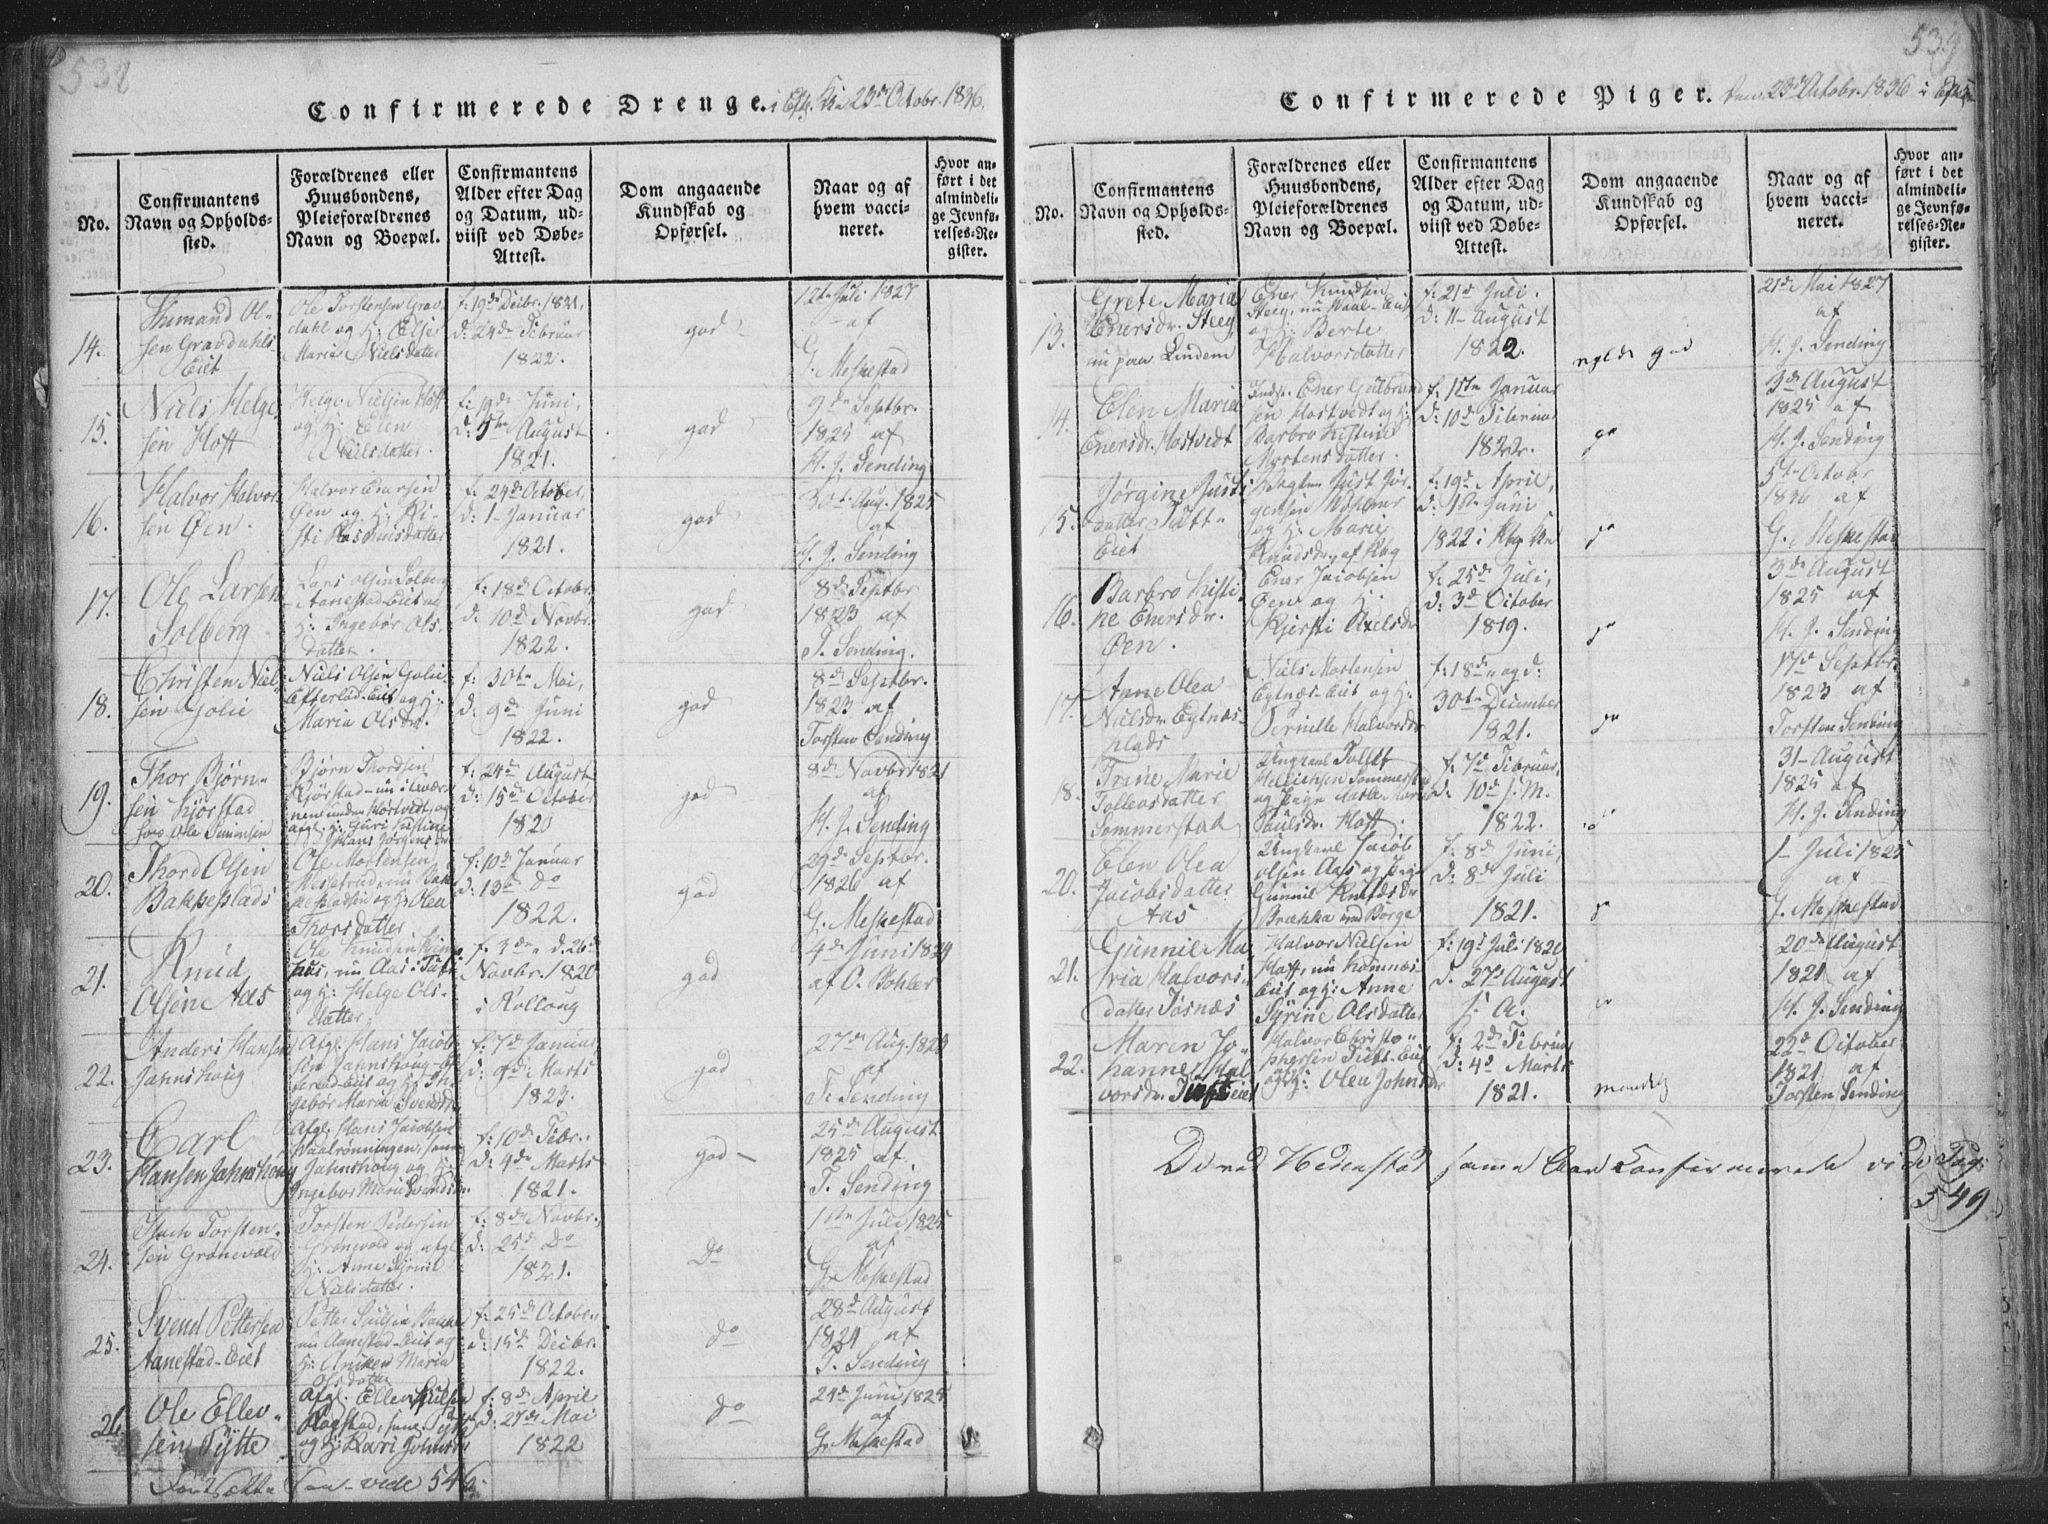 538
Confirmerede Drenge. i Efg. K. 23de Octobr. 1836.
No.
Confirmantens Navn og Opholds-sted.
Forældrenes eller Huusbondens, Pleieforældrenes Navn og Boepæl.
Confirmantens Alder efter Dag og Datum, ud-viist ved Døbe-Attest.
Dom angaaende Kundskab og Opførsel.
Naar og af hvem vacci-neret.
Hvor an-ført i det almindeli-ge Jevnfø-relses-Re-gister.
14.
Ol-
sen Gravdahls
Eiet
Ole Torstensen Grav-
dahl og H: Elsea
Marie Nielsdatter
f: 19de Decbr. 1821,
d: 24de Februar
1822.
god
12te Juli 1827
af
G. Meskestad
15.
Niels Helge-
sen Hoff
Helge Nielsen Hoff
og H: Elen
Nielsdatter.
f: 19de Juni,
d: 5te August
1821.
god
9de Septbr.
1825 af
H. J. Sending
16.
Halvor Halvor
sen Øen.
Halvor Enersen
Øen og H: Ki-
sti Rasmusdatter
f: 24de October,
d: 1 Januar
1821.
god
30te Aug. 1825
af
H. J. Sending
17.
Ole Larsen
Solberg
Lars Olsen Solberg
Aanestad-Eiet og
H: Ingebor Ols-
datter.
f: 18de Octobr.
d: 10de Novbr.
1822.
god
8de Septbr
1823 af
T. Sending.
18.
Christen Niel-
sen Golie
Niels Olsen Golie
Efterlød-Eiet og H:
Maria Olsdr.
f: 30te Mai,
d: 9de Juni
1822.
god
8de Septbr.
1823 af
Torsten Sending
19.
Thor Bjørn-
sen Kjørstad
hos Ole Simensen
Bjørn Thordsen
Kjørstad-nu i Qvær-
nen under Hostvedt, og
afgl. H: Guri Justine
Hans Jørgensdr
f: 24de August
d: 15de October
1820
god
8de Novbr 1821
af
H. J. Sending
20.
Thord Olsen
Bakkeplads
Ole Mortensen
nu Bak
kepladsen og H: Olea
Thorsdatter
f: 10de Januar
d: 13de do
1822.
god
29de Septbr.
1826 af
G. Meskestad
21.
Knud
Olsen Aas
Ole Knudsen
hus, nu Aas i Tuft
og H: Helge Ols-
datter;
f. 3de, d. 26de
Novbr. 1820
i Rolloug
god
4de Juni 1829
af O. Bohler
22.
Anders Hansen
Jahnshoug
Afgl. Hans Jacob
sen Jahnshoug-Ef
terlød-Eiet og H: In
gebør Maria Svendsdr
f: 7de Januar
d: 9de Marts
1823.
god
27de Aug. 1823
af
T. Sending
23.
Carl
Hansen Jahnshoug
Afgl. Hans Jacobsen
Vaalrønningen, senere
Jahnshoug og H:
Ingebor Marie Svendsdr.
f: 10de Febr.
d: 4de Marts
1821.
god
25de August
1825 af
T. Sending
24.
Isach Torsten-
sen Grønevold
Torsten Pedersen
Grønevold og afgl.
H: Anne Sirine
Nielsdatter.
f: 8de Novbr.
d: 25de Do
1821.
Do
1ste Juli 1825
af
G. Meskestad
25.
Svend Pettersen
Aanestad-Eiet
Petter
nu Aanestad-Eiet og
H: Aniken Maria
Olsdatter
f: 25de Octobr.,
d: 15de Decbr.
1822.
do
28de August
1824 af
T. Sending
26.
Ole Ellev-
sen Tytte
Afgl. Ellev
Rogstad, sene. Tytte
og H: Kari Johnsdr
f: 8de April
d: 27de Mai
1822
do
24de Juni 1825
af
G. Meskestad
vide 546.
539
Confirmerede Piger. den 23de Octobr. 1836 i Efg. K.
No.
Confirmantens Navn og Opholds-sted.
Forældrenes eller Huusbondens, Pleieforældrenes Navn og Boepæl.
Confirmantens Alder efter Dag og Datum, ud-viist ved Døbe-Attest.
Dom angaaende Kundskab og Opførsel.
Naar og af hvem vacci-neret.
Hvor an-ført i det almindeli-ge Jevnfø-relses-Re-gister.
13.
Grete Maria
Enersdr. Steeg
nu paa Lindem
Ener Knudsen
Steeg, nu Vaal-Eiet
og H: Berte
Halvorsdatter
f: 21de Juli.
d: 11 August
1822.
god
21de Mai 1827
af
H. J. Sending
14.
Elen Maria
Enersdr. Hostvedt
Inds. Ener Gulbrand
sen Hostvedt og H:
Barbro Kistine
Mortensdatter.
f: 17te Januar
d: 10de Februar
1822.
3de August
1825 af
H. J. Sending
15.
Jørgine Justi
datter Tuft-
Eiet
Just Jør
gensen
og H: Marie
Knudsdr. af Kbg
f: 19de April,
d: Juni
1822 i Kbg K
5te Octobr
1836 af
G. Meskestad
16.
Barbro Kisti-
ne Enersdr.
Øen.
Ener Jacobsen
Øen og H:
Kjersti Axelsdr
f: 25de Juli,
d: 3de October
1819.
3de August
1825 af
H. J. Sending
17.
Anne Olea
Nielsdr. Egtnæs-
plads
Niels Mortensen
Egtnæs-Eiet og H:
Pernille Halvorsdr
f: 18de, og d:
30te December
1821.
17de Septbr.
1823 af
Torsten Sending
18.
Trine Marie
Tollevsdatter
Sommerstad
Ungkarl Tollef
Hellichsen Sommerstad
og Pige Maria
Paulsdr. Hoff.
f: 7de Februar,
d: 10de s: M.
1822.
31 August
1825 af
H. J. Sending
20.
Elen Olea
Jacobsdatter
Aas
Ungkarl Jacob
Olsen Aas og Pige
Gunnil Knudsdr
Brække
f: 8de Juni,
d: 8de Juli
1821.
1 Juli 1825
af
G. Meskestad
21.
Gunnil Ma
ria Halvors-
datter Tosnæs
Halvor Nielsen
Hoff, nu Komnæs-
Eiet og H: Anne
Syrine Olsdatter
f: 19de Juli 1820
d. 27de August
s. A.
20de August
1821 af
H. J. Sending
22.
Maren Jo-
hanne Hal
vorsdr. Tufteeiet
Halvor Christo-
phersen Tuft-Eiet
og H: Olea Johnsdr
f: 2de Februar
d: 4de Marts
1821.
maadelig
22de October
1821 af
Torsten Sending
De ved Hedenstad samme Aar Confirmerede vide Pag.
549